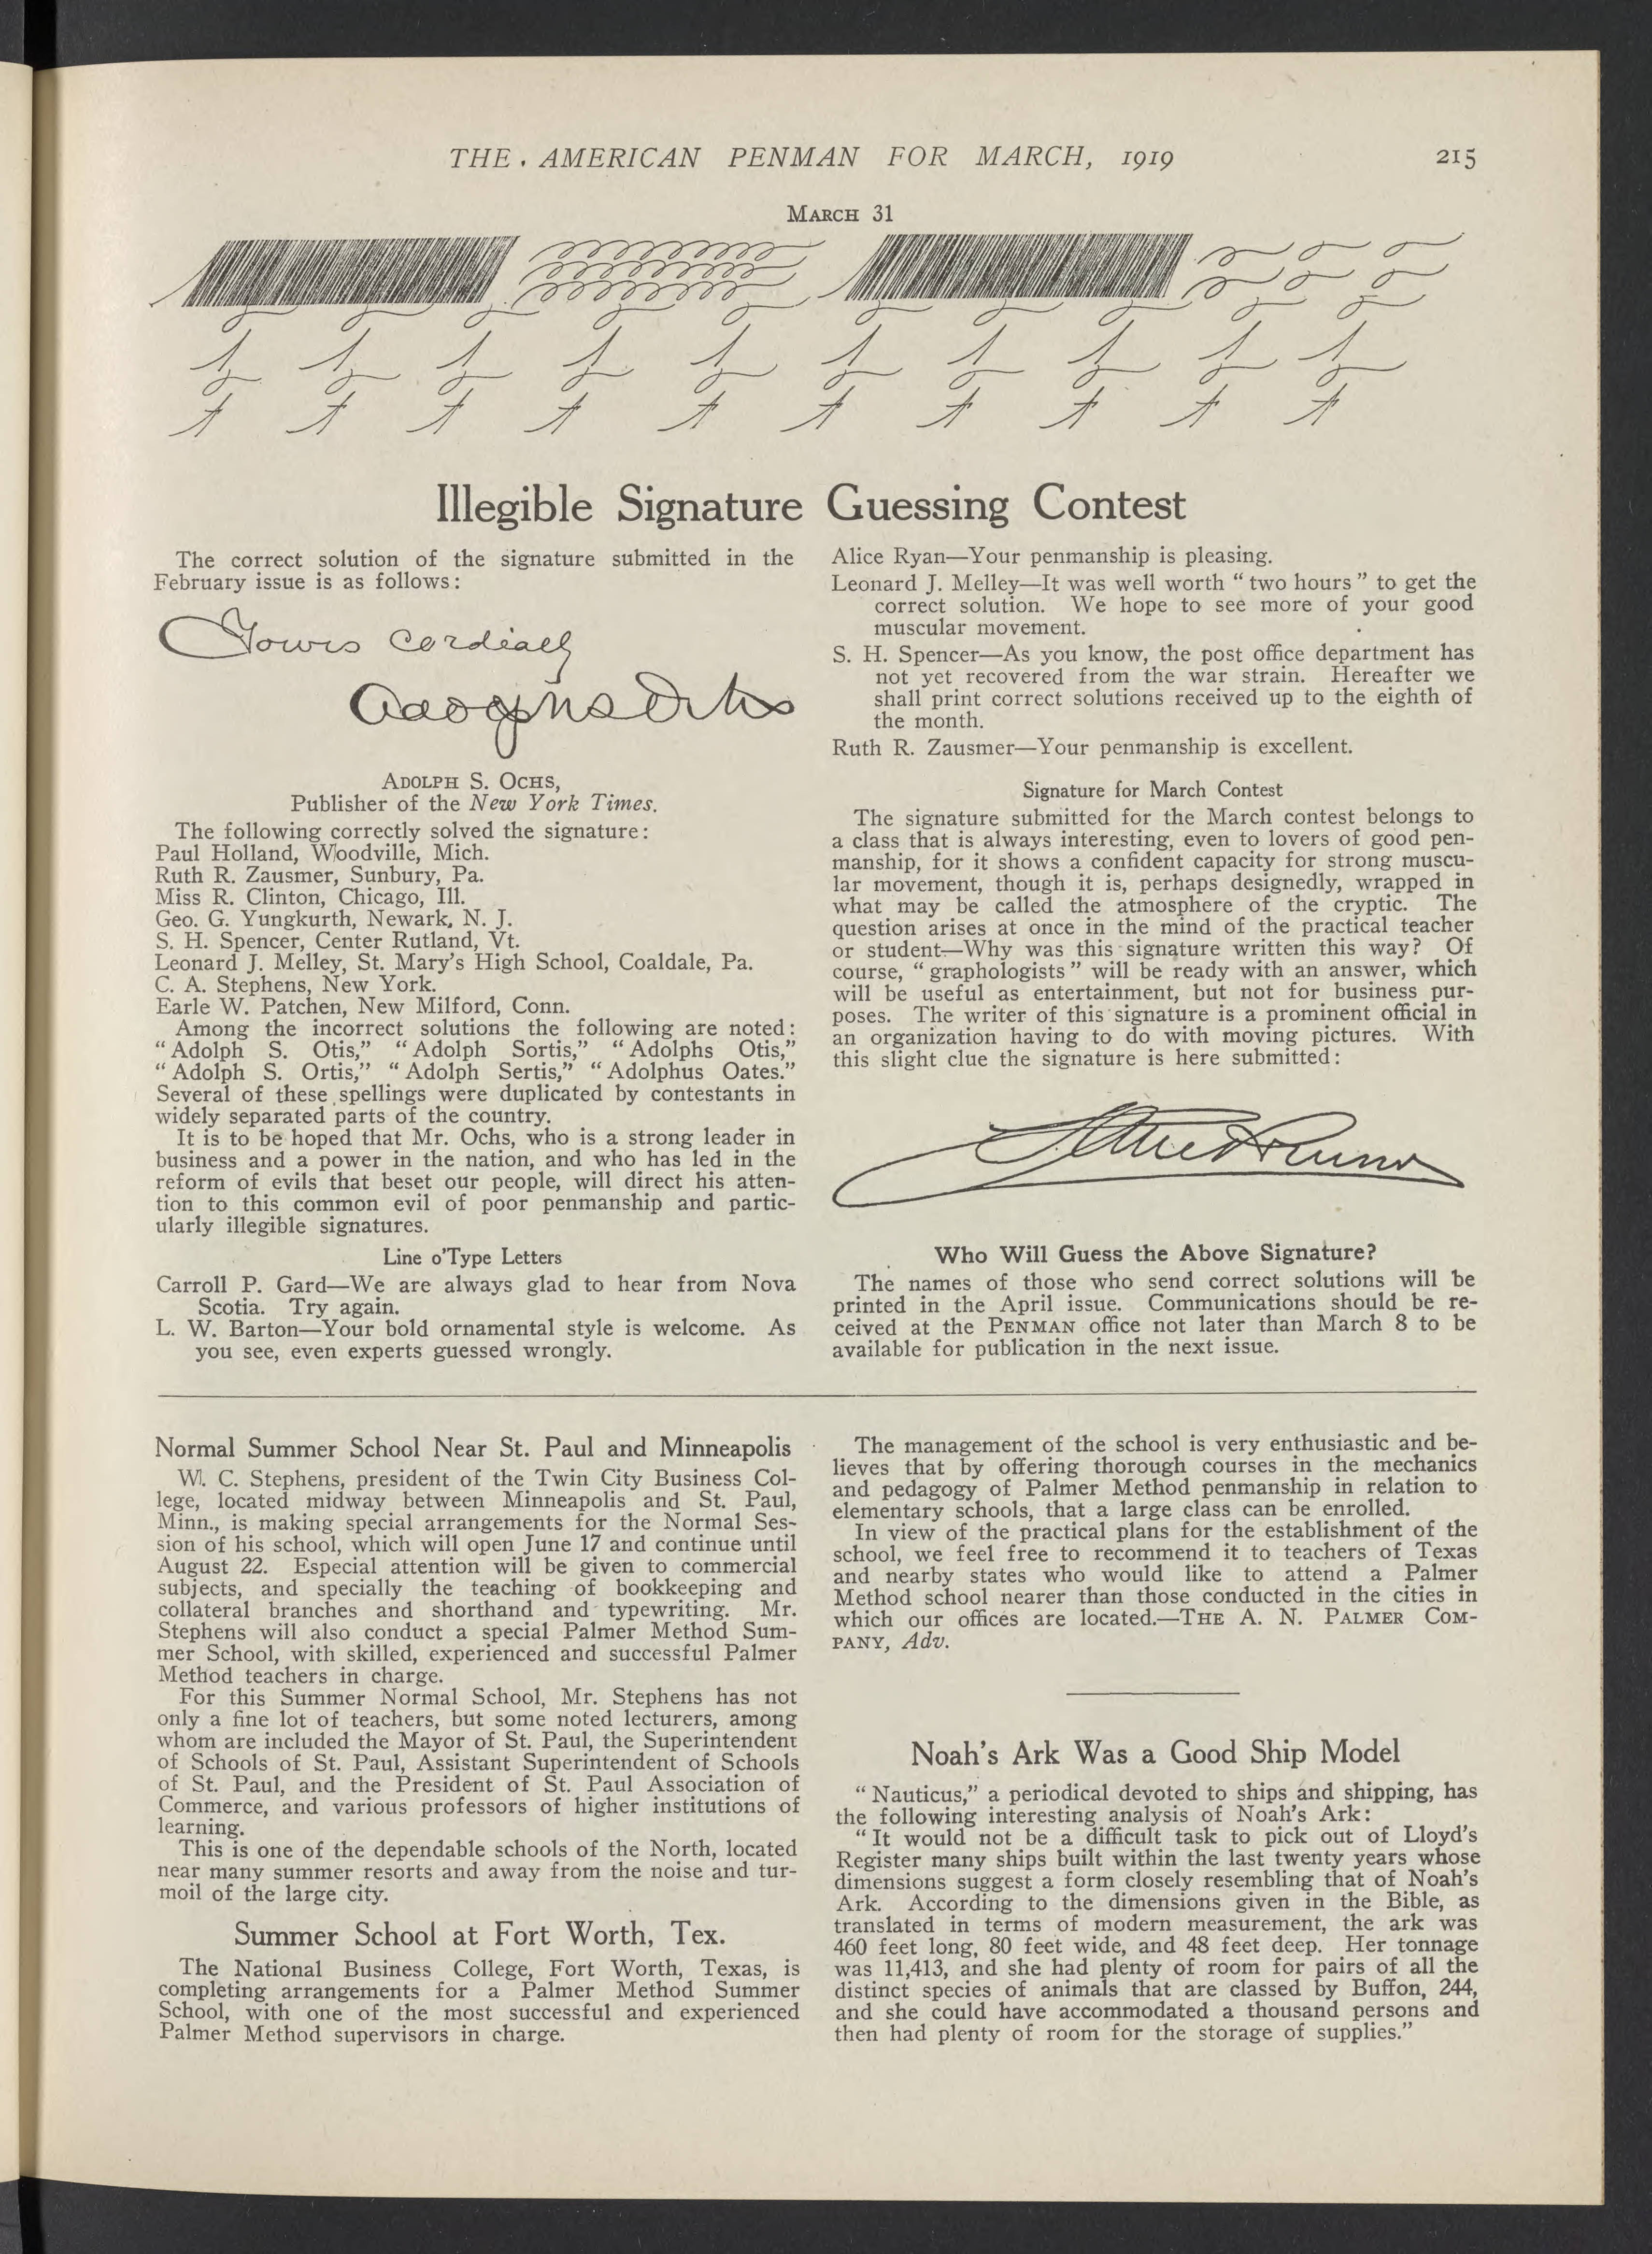 THE AMERICAN PENMAN FOR MARCH, 1919 215
MARCH 31
Illegible Signature Guessing Contest
The correct solution of the signature submitted in the
February issue is as follows:
Yours cordially
ADOLPH S. OCHS,
Publisher of the New York Times.
The following correctly solved the signature:
Paul Holland, Woodville, Mich.
Ruth R. Zausmer, Sunbury, Pa.
Miss R. Clinton, Chicago, Ill.
Geo. G. Yungkurth, Newark, N. J.
S. H. Spencer, Center Rutland, Vt.
Leonard J. Melley, St. Mary's High School, Coaldale, Pa.
C. A. Stephens, New York.
Earle W. Patchen, New Milford, Conn.
Among the incorrect solutions the following are noted:
"Adolph S. Otis," "Adolph Sortis," "Adolphs Otis,"
"Adolph S. Ortis," "Adolph Sertis," "Adolphus Oates."
Several of these spellings were duplicated by contestants in
widely separated parts of the country.
It is to be hoped that Mr. Ochs, who is a strong leader in
business and a power in the nation, and who has led in the
reform of evils that beset our people, will direct his atten-
tion to this common evil of poor penmanship and partic-
ularly illegible signatures.
Line o'Type Letters
Carroll P. Gard—We are always glad to hear from Nova
Scotia. Try again.
L. W. Barton—Your bold ornamental style is welcome. As
you see, even experts guessed wrongly.
Alice Ryan—Your penmanship is pleasing.
Leonard J. Melley—It was well worth "two hours" to get the
correct solution. We hope to see more of your good
muscular movement.
S. H. Spencer—As you know, the post office department has
not yet recovered from the war strain. Hereafter we
shall print correct solutions received up to the eighth of
the month.
Ruth R. Zausmer—Your penmanship is excellent.
Signature for March Contest
The signature submitted for the March contest belongs to
a class that is always interesting, even to lovers of good pen-
manship, for it shows a confident capacity for strong muscu-
lar movement, though it is, perhaps designedly, wrapped in
what may be called the atmosphere of the cryptic. The
question arises at once in the mind of the practical teacher
or student—Why was this signature written this way? Of
course, "graphologists" will be ready with an answer, which
will be useful as entertainment, but not for business pur-
poses. The writer of this signature is a prominent official in
an organization having to do with moving pictures. With
this slight clue the signature is here submitted:
Who Will Guess the Above Signature?
The names of those who send correct solutions will be
printed in the April issue. Communications should be re-
ceived at the PENMAN office not later than March 8 to be
available for publication in the next issue.
Normal Summer School Near St. Paul and Minneapolis
W. C. Stephens, president of the Twin City Business Col-
lege, located midway between Minneapolis and St. Paul,
Minn., is making special arrangements for the Normal Ses-
sion of his school, which will open June 17 and continue until
August 22. Especial attention will be given to commercial
subjects, and specially the teaching of bookkeeping and
collateral branches and shorthand and typewriting. Mr.
Stephens will also conduct a special Palmer Method Sum-
mer School, with skilled, experienced and successful Palmer
Method teachers in charge.
For this Summer Normal School, Mr. Stephens has not
only a fine lot of teachers, but some noted lecturers, among
whom are included the Mayor of St. Paul, the Superintendent
of Schools of St. Paul, Assistant Superintendent of Schools
of St. Paul, and the President of St. Paul Association of
Commerce, and various professors of higher institutions of
learning.
This is one of the dependable schools of the North, located
near many summer resorts and away from the noise and tur-
moil of the large city.
Summer School at Fort Worth, Tex.
The National Business College, Fort Worth, Texas, is
completing arrangements for a Palmer Method Summer
School, with one of the most successful and experienced
Palmer Method supervisors in charge.
The management of the school is very enthusiastic and be-
lieves that by offering thorough courses in the mechanics
and pedagogy of Palmer Method penmanship in relation to
elementary schools, that a large class can be enrolled.
In view of the practical plans for the establishment of the
school, we feel free to recommend it to teachers of Texas
and nearby states who would like to attend a Palmer
Method school nearer than those conducted in the cities in
which our offices are located.—THE A. N. PALMER COM-
PANY, Adv.
Noah's Ark Was a Good Ship Model
"Nauticus," a periodical devoted to ships and shipping, has
the following interesting analysis of Noah's Ark:
"It would not be a difficult task to pick out of Lloyd's
Register many ships built within the last twenty years whose
dimensions suggest a form closely resembling that of Noah's
Ark. According to the dimensions given in the Bible, as
translated in terms of modern measurement, the ark was
460 feet long, 80 feet wide, and 48 feet deep. Her tonnage
was 11,413, and she had plenty of room for pairs of all the
distinct species of animals that are classed by Buffon, 244,
and she could have accommodated a thousand persons and
then had plenty of room for the storage of supplies."